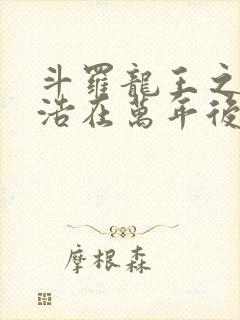 斗羅龍王之
浩在萬年後
摩根森